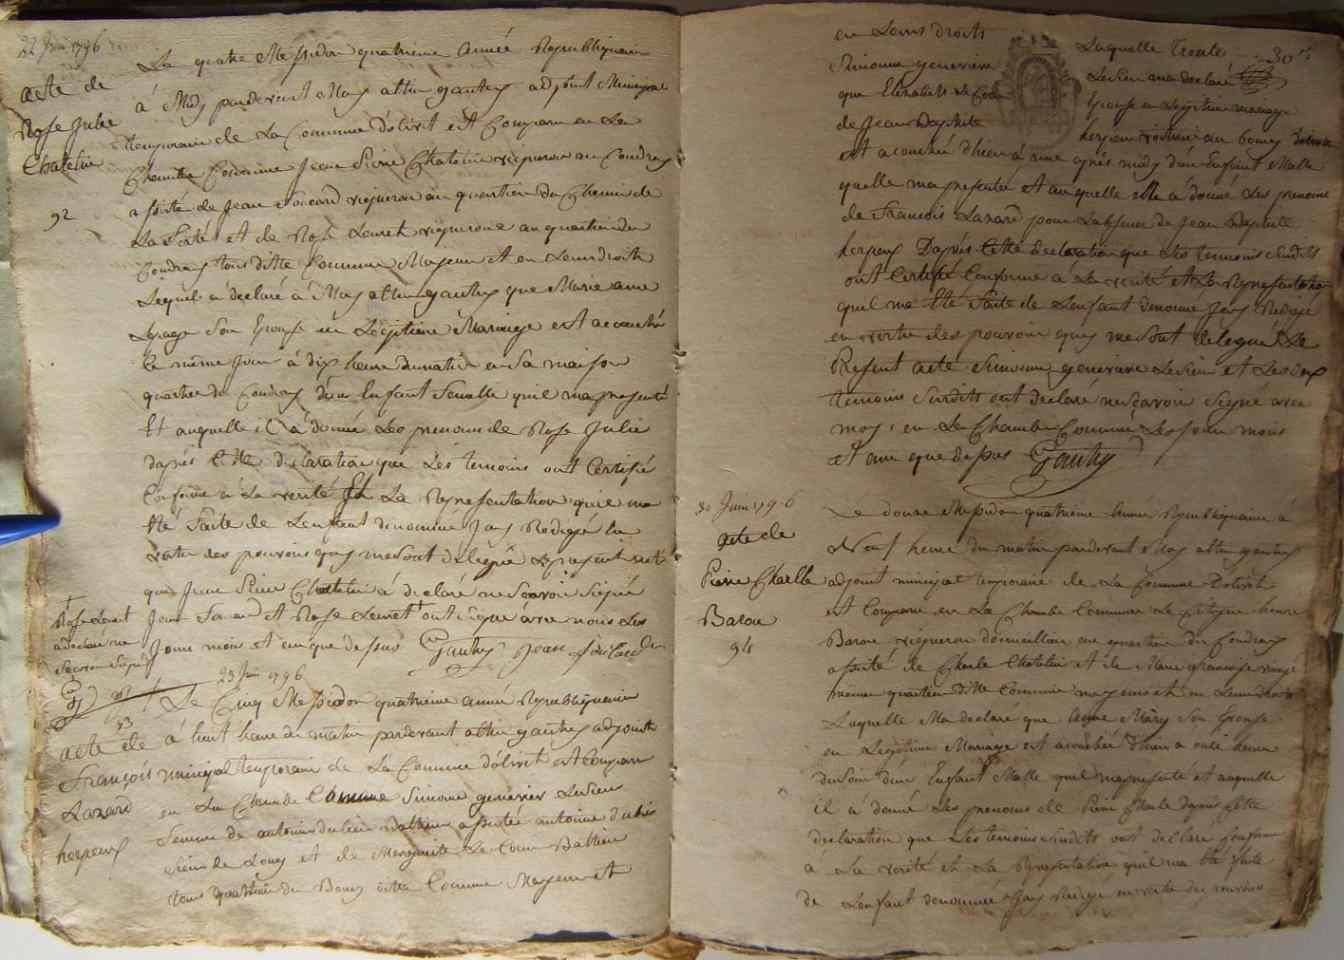 22 Juin 1796
acte de
Rose Julie
Chatelin
92
Le quatre Messidor quatrieme année Republiquaine
à Midy pardevent Moy gautry adjoint Municipal
temporaire de La Commune d'olivet est Comparu en La
Chambre Commune Jean Pierre Chatelin vigneron au Coudray
assisté de Jean vigneron au quartier du Chemin de
La et de Rose Lenret vigneronne au quartier du
Coudray tous ditte Commune Majeur et en Leurs droits
Lequel a déclaré à Moy gautry que Marie anne
Lepage Son Epouse en Légitime Mariage est accouché
le même Jour à dix heure du matin en Sa maison
quartier du Coudray d'un Enfant femelle qu'il ma presenté
Et auquelle il à donné Les prenoms de Rose Julie
daprés Cette declaration que Les temoins ont Certifié
Conforme à La verité Et La Representation qu'il ma
été faite de L'enfant denommé Jay Redigée en
vertu des pouvoirs quy me sont délégué Le présent acte
que Jean Pierre Chatelin à déclaré ne Scavoir Signé
Jean et Rose Lenret ont Signé avec nous Les
Jour mois et an que dessus Gautry Jean
Rose Lenret
a declaré ne
Scavoir Signé
23 Juin 1796
93
acte de
François
Lazard
herpeux
Le Cinq Messidor quatrieme année Republiquaine
à huit heure du matin pardevant gautry adjoint
municipal temporaire de La Commune d'olivet est Comparu
en La Chambre Commune Simonne genevieve Lesieur
femme de antoine assistée antoine
et de Marguerite Le
tous quartier du Bourg ditte Commune Majeur et
en Leurs droits
Simonne genevieve
que Elizabeth Le
de Jean Baptiste
Laquelle Trente 30
Lesieur ma declaré
Epouse en Légitime mariage
herpeux au bourg
est acouchée d'hier à une après midy d'un Enfant Malle
quelle ma presentée et auquelle elle à donné Les prenoms
de François Lazard pour de Jean Baptiste
herpeux Daprés Cette declaration que Les temoins Susdits
ont Certifié Conforme à La verité et La Representation
quil ma été faite de L'enfant denommé Jay Redigé
en vertu des pouvoir quy me sont délégué Le
Présent acte Simonne genevieve Lesieur et Les deux
temoins Susdits ont declaré ne Scavoir Signé avec
moy en La Chambre Commune Les Jour mois
et an que dessus Gautry
30 Juin 1796
acte de
Pierre Charlle
Barou
94
Le douze Messidor quatrieme année Republiquaine à
Neuf heure du matin pardevant Moy gautry
adjoint municipal temporaire de La Commune d'olivet
est Comparu en La Chambre Commune Le Citoyen
Barou vigneron au quartier du Coudray
assisté de Charle Chatelin et de Marie
quartier ditte Commune majeurs et en Leurs droits
Laquelle Ma declaré que Anne Mary Son Epouse
en Légitime Mariage est acouchée d'hier a onze heure
du Soir d'un Enfant Malle quil ma presenté et auquelle
il a donné Les prenoms de Pierre Charle daprés Cette
declaration que Les temoins Susdits ont declaré Conforme
à La verité et La Representation quil ma été faite
de L'enfant denommé Jay Redigé en vertu des pouvoirs